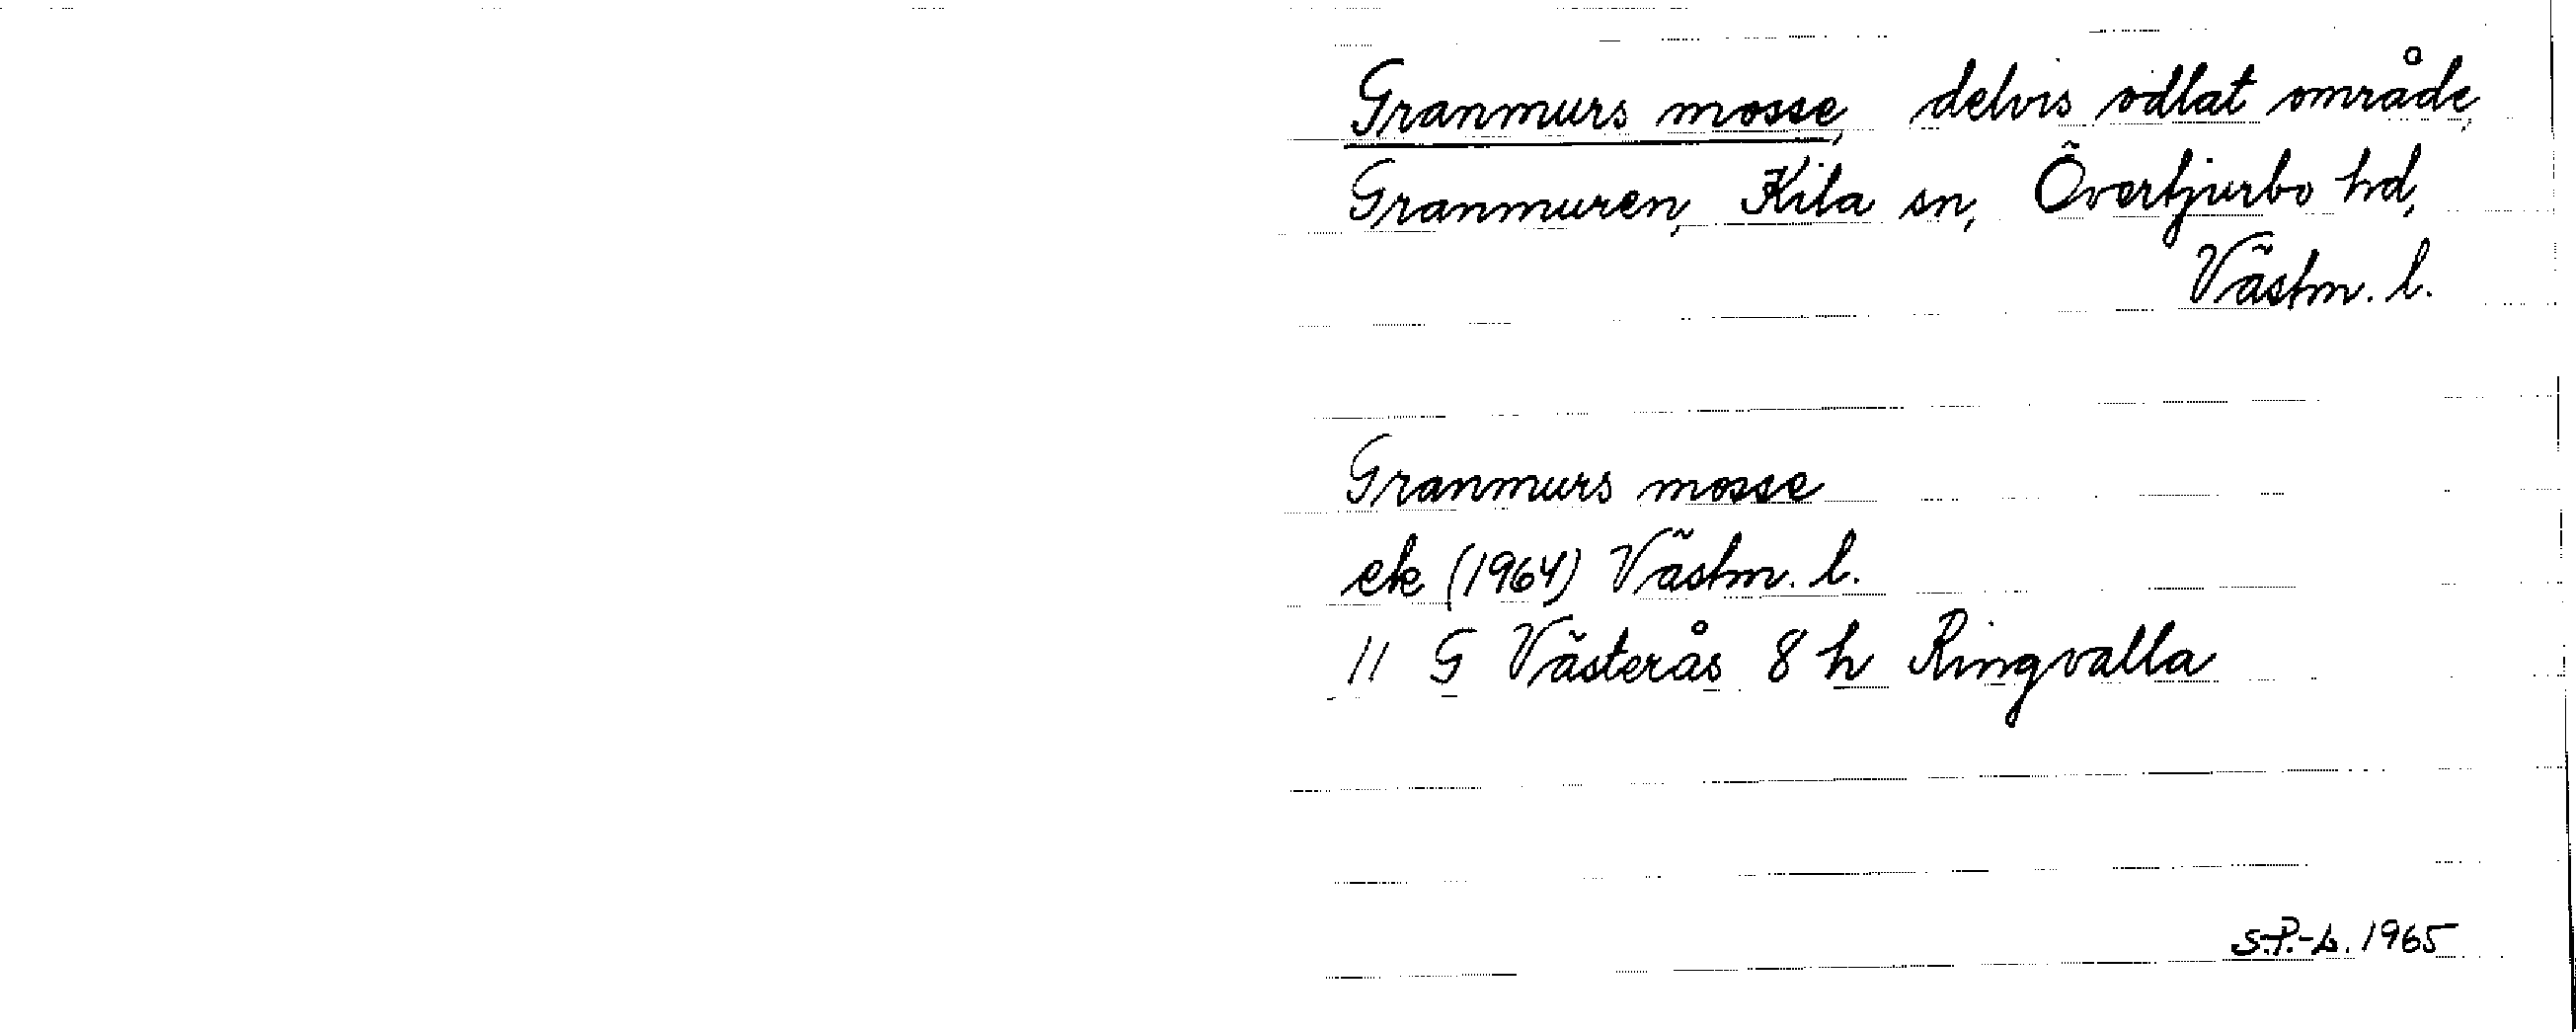 Granmurs mosse, delvis odlat område,
Granmuren, Kila sn, Övertjurbo hd,
Västm. l.
Granmurs mosse
ek (1964) Västm. l.
11 G Västerås 8 h Ringvalla
S.P.-L. 1965